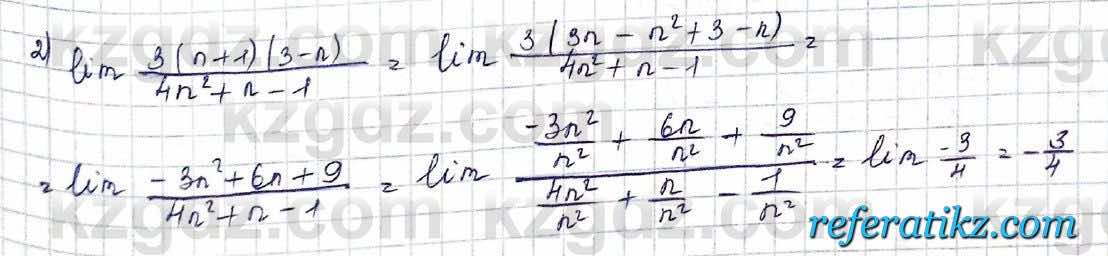 2) lim 3(n+1)(3-n) / 4n²+n-1 = lim 3(3n-n²+3-n) / 4n²+n-1 =
= lim -3n²+6n+9 / 4n²+n-1 = lim -3n²/n² + 6n/n² + 9/n² / 4n²/n² + n/n² - 1/n² = lim -3/4 = -3/4
kzgdz.com
referatikz.com